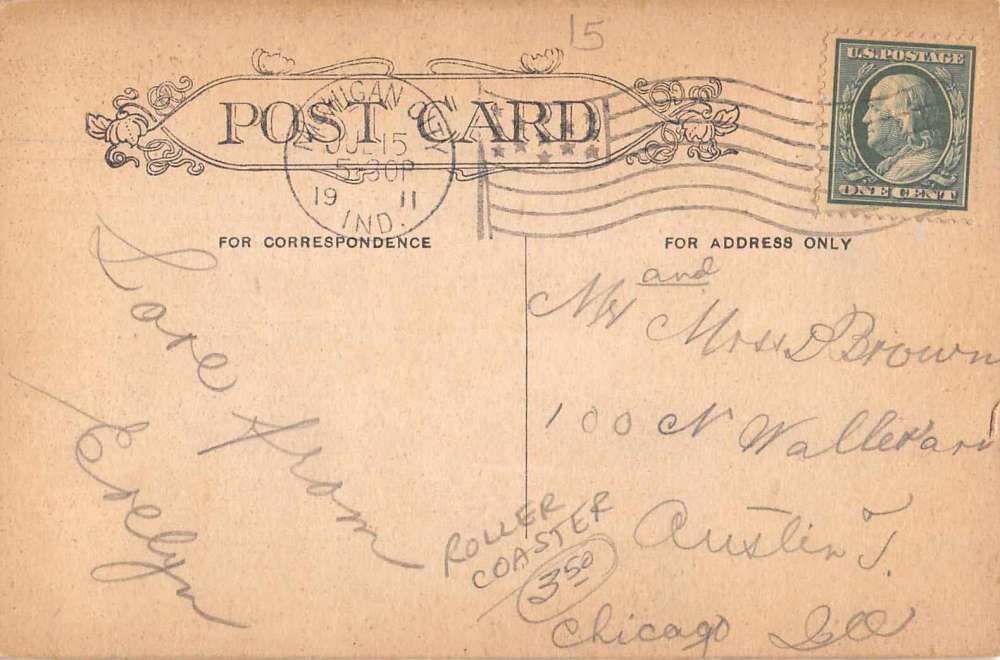 15
U.S. POSTAGE
ONE CENT
POST CARD
MICHIGAN CITY
JUL 15
5-30P
19 11
IND.
FOR CORRESPONDENCE
FOR ADDRESS ONLY
Love from
Evelyn
and
Mr Mrss D Brown
100 N
Austin
Chicago Ill
ROLLER
COASTER
3 50